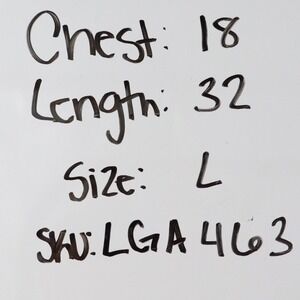 Chest: 18
Length: 32
Size: L
SKU: LGA 463